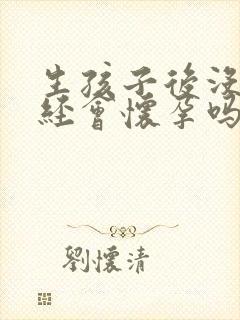 生孩子後沒
經會懷孕嗎
劉懷清